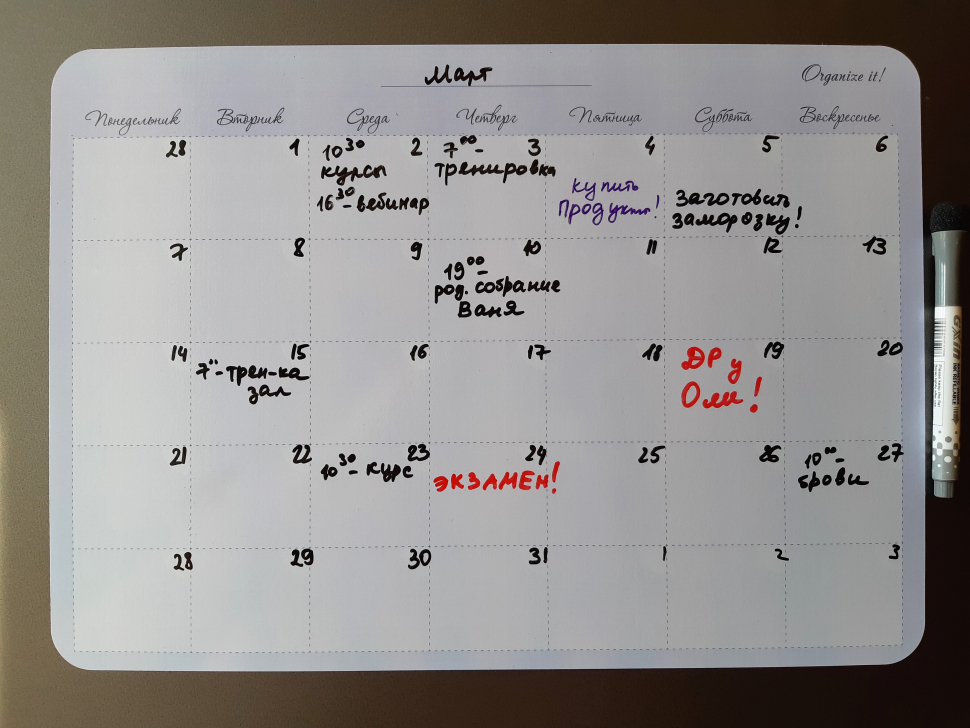 Март
Organize it!
Понедельник Вторник Среда Четверг Пятница Суббота Воскресенье
28 1 2 3 4 5 6
10³⁰
курсы
16³⁰-вебинар
7⁰⁰-
тренировка
купить
продукты!
Заготовить
заморозку!
7 8 9 10 11 12 13
19⁰⁰-
род. собрание
Ваня
14 15 16 17 18 19 20
7⁰⁰-трен-ка
зал
ДР у
Оли!
21 22 23 24 25 26 27
10³⁰-курс
ЭКЗАМЕН!
10⁰⁰-
брови
28 29 30 31 1 2 3